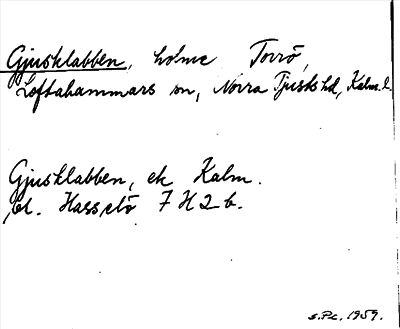 Gjusklabben, holme Torrö,
Loftahammars sn, Norra Tjusts hd, Kalm. l.
Gjusklabben, ek Kalm.
bl. Hasselö 7 H 2 b.
s.Pc. 1959.